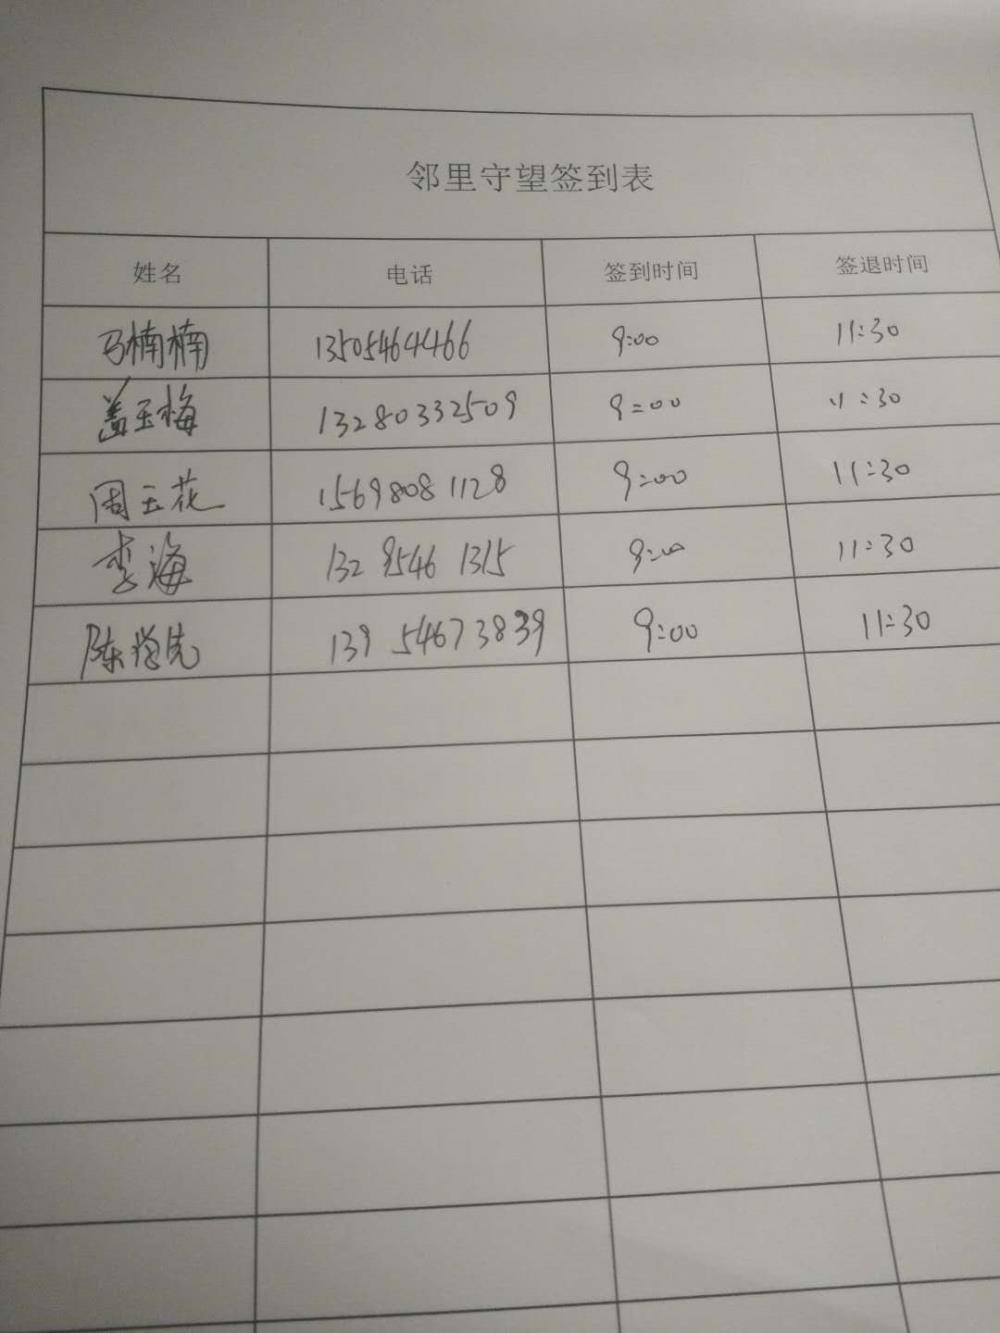 邻里守望签到表
姓名 电话 签到时间 签退时间
马楠楠 13505464466 9:00 11:30
盖玉梅 13280332509 9:00 11:30
周玉花 15698081128 9:00 11:30
李海 132 8546 1315 9:00 11:30
陈学先 139 54673839 9:00 11:30